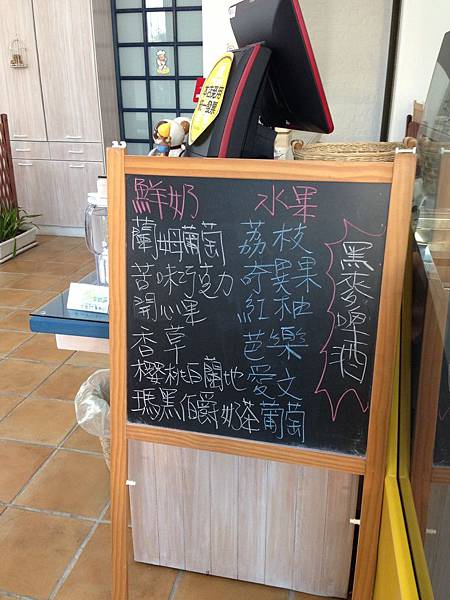 鮮奶
蘭姆葡萄
苦味巧克力
開心果
香草
櫻桃白蘭地
瑪黑伯爵奶茶
水果
荔枝
奇異果
紅柚
芭樂
愛文
葡萄
黑麥啤酒